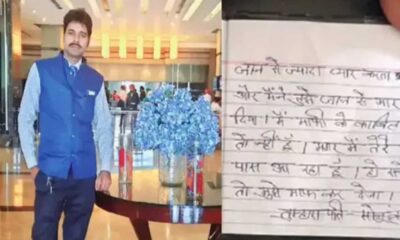 जान से ज्यादा प्यार करता
और मैंने उसे जान से मार
दिया। मैं माफी के काबिल
तो नहीं हूँ। मगर मैं तेरे
पास आ रहा हूँ। हो सके
तो मुझे माफ कर देना।
तुम्हारा पति-